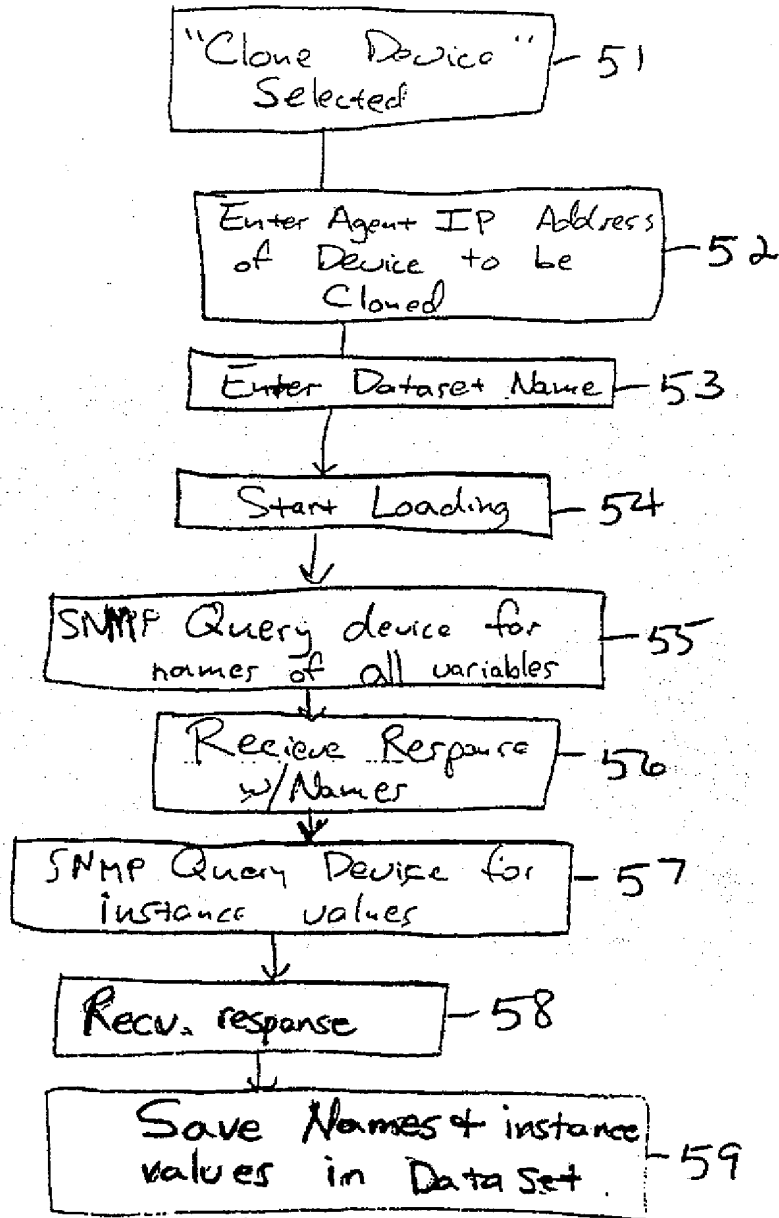 "Clone Device"
Selected
51
Enter Agent IP Address
of Device to be
Cloned
52
Enter Dataset Name
53
Start Loading
54
SNMP Query device for
names of all variables
55
Recieve Response
w/Names
56
SNMP Query Device for
instance values
57
Recv. response
58
Save Names & instance
values in Data Set.
59